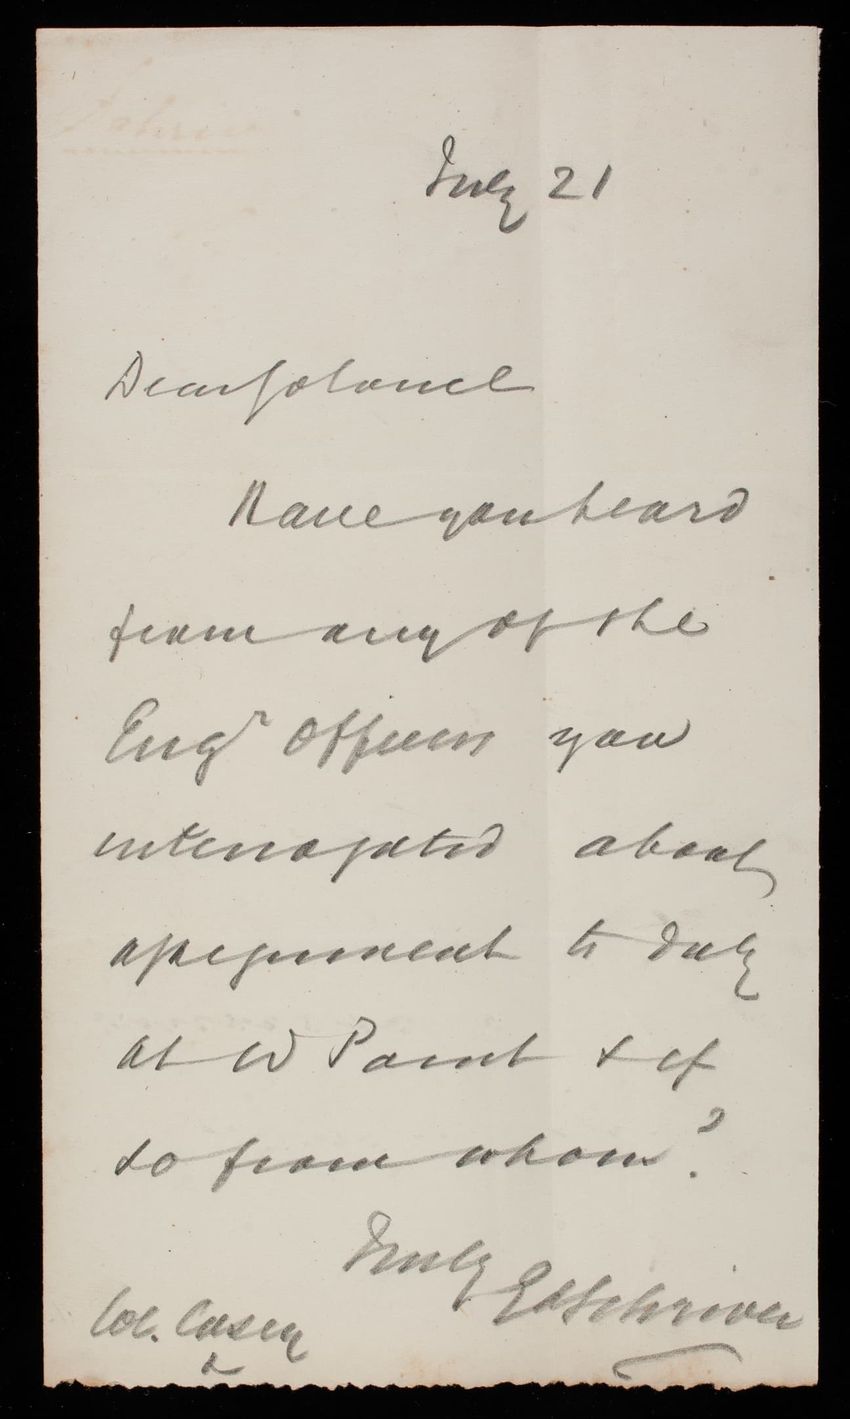 July 21
Dear Colonel
Have you heard
from any of the
Engr Officers you
interrogated about
assignment to duty
at W Point & if
so from whom?
Truly EdSchriver
Col. Casey